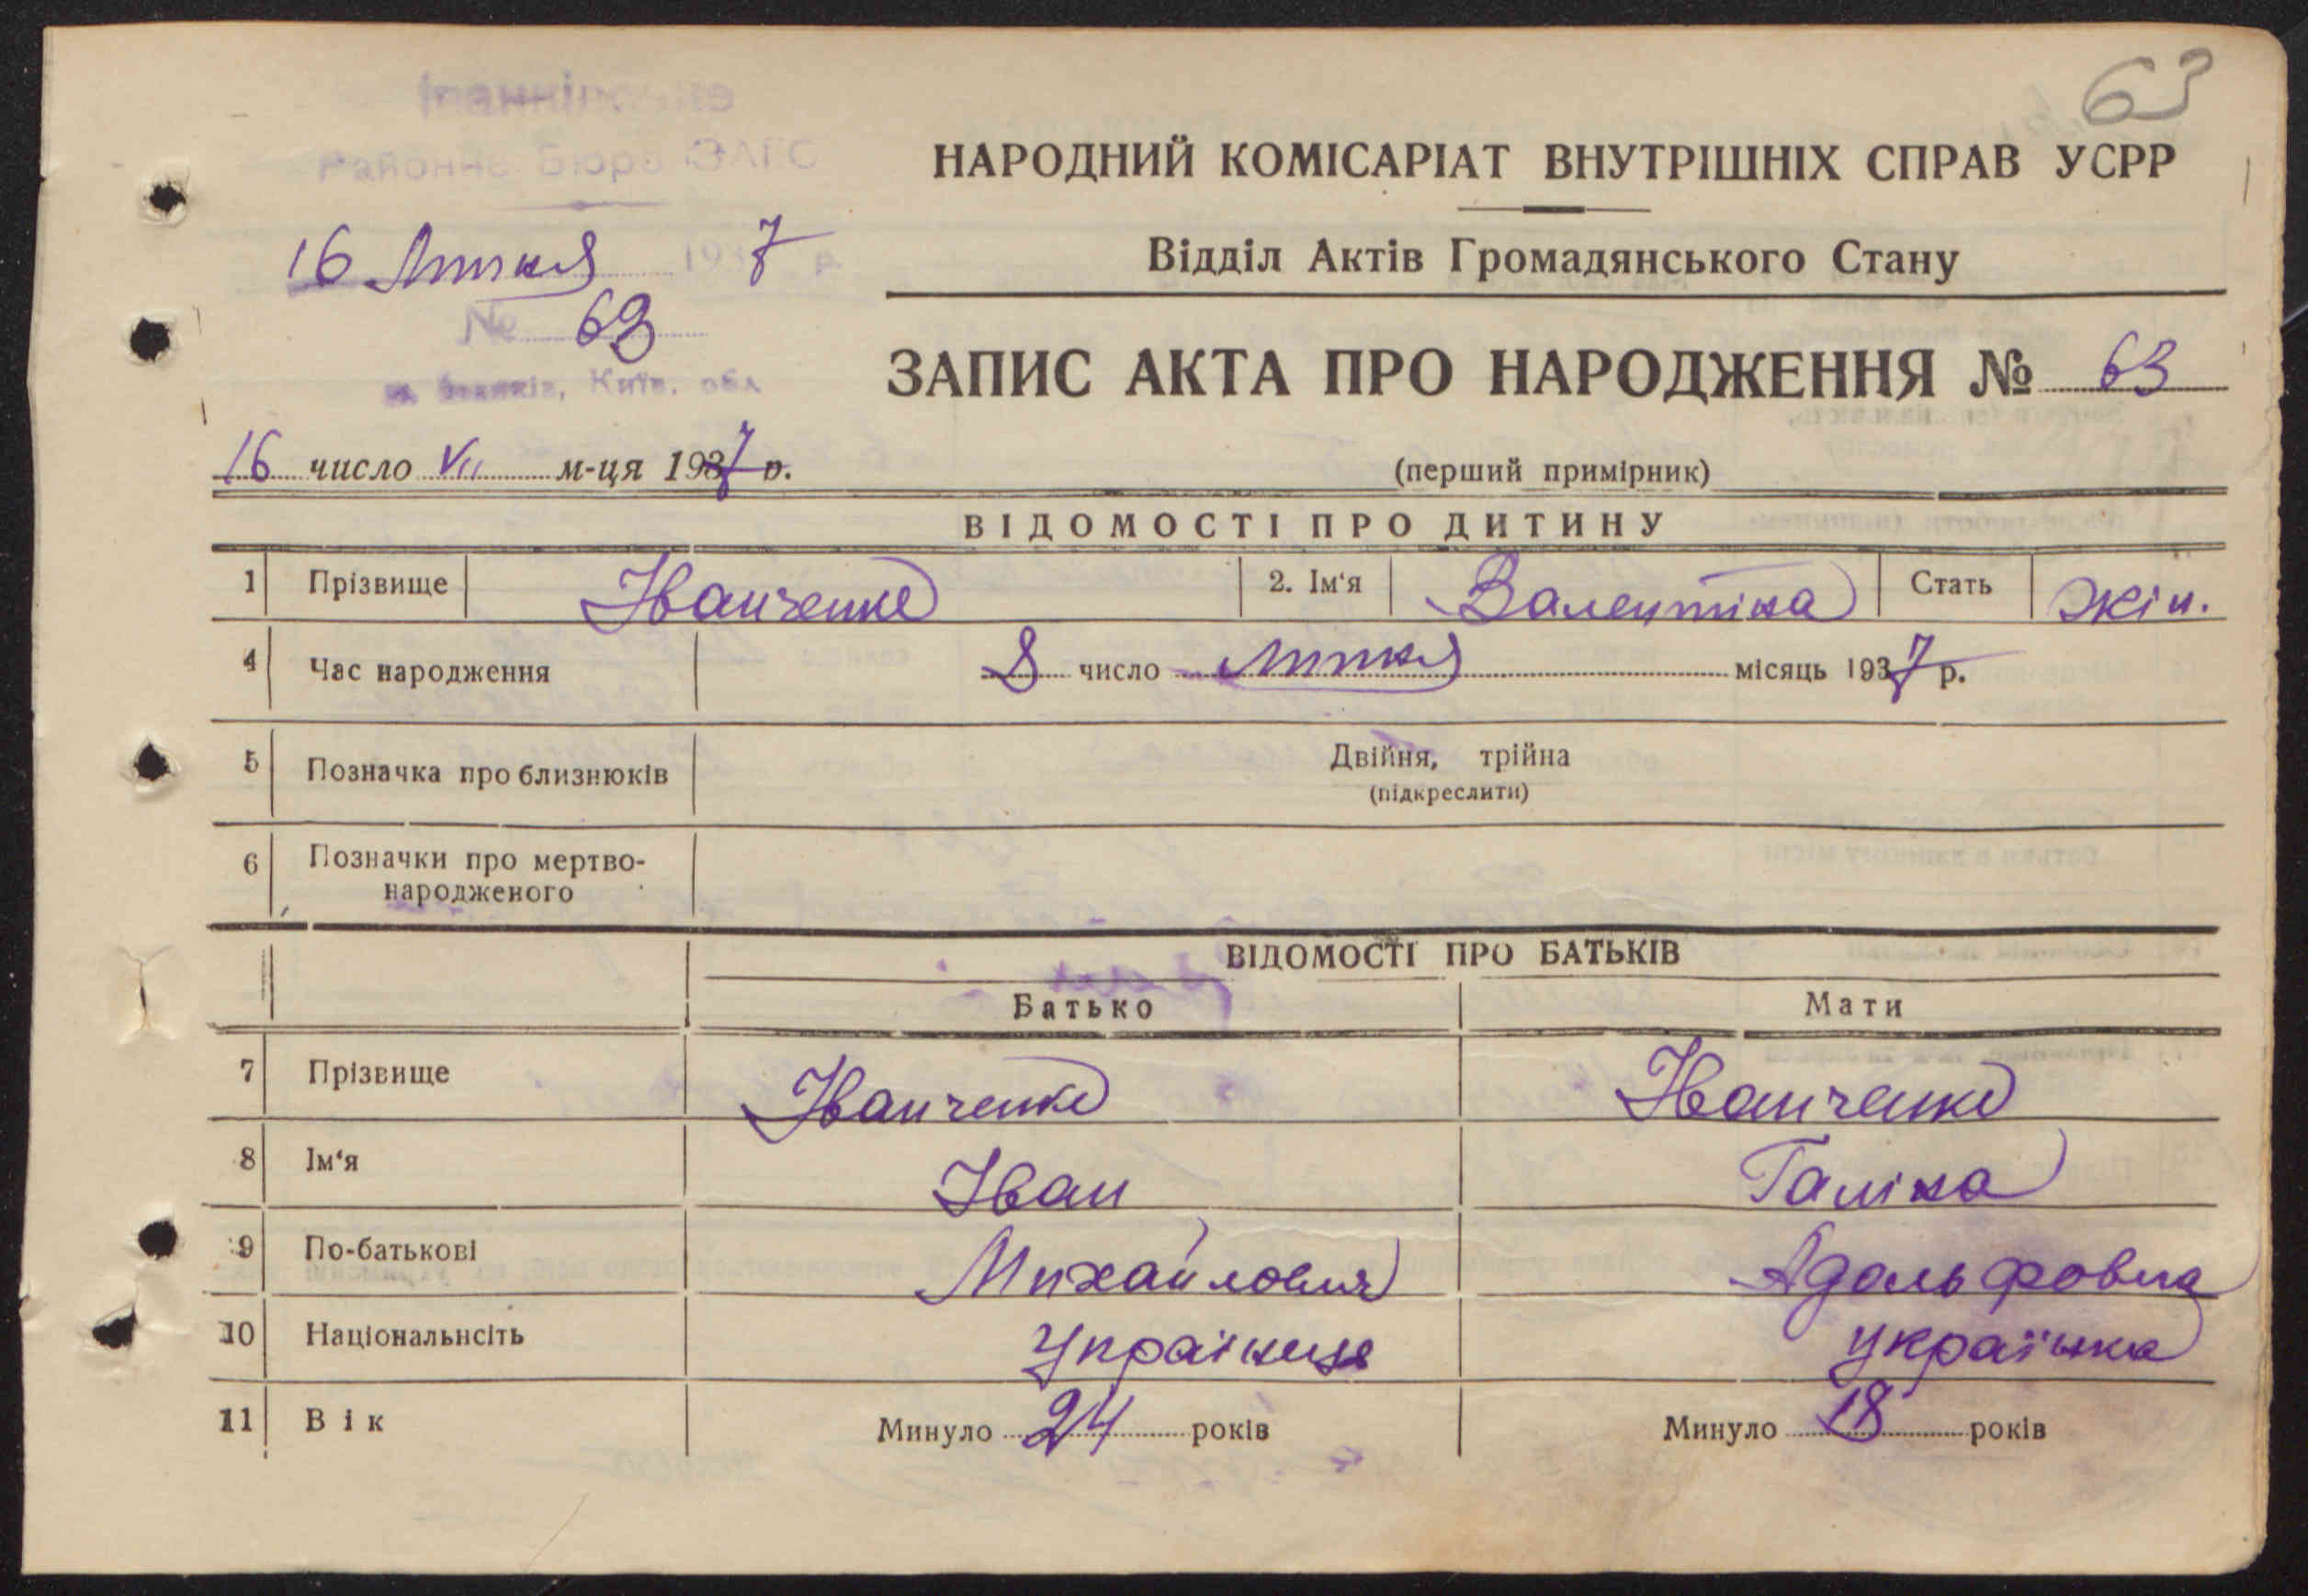 63
НАРОДНИЙ КОМІСАРІАТ ВНУТРІШНІХ СПРАВ УСРР
Районне Бюро ЗАГС
Відділ Актів Громадянського Стану
16 Липня 1937 р.
№ 63
Київ. обл
ЗАПИС АКТА ПРО НАРОДЖЕННЯ № 63
16 число VII м-ця 1937 р.
(перший примірник)
ВІДОМОСТІ ПРО ДИТИНУ
1 Прізвище Іванченко 2. Ім'я Валентіна Стать жін.
4 Час народження 8 число липня місяць 1937 р.
5 Позначка про близнюків Двійня, трійна
(підкреслити)
6 Позначки про мертво-
народженого
ВІДОМОСТІ ПРО БАТЬКІВ
Батько Мати
7 Прізвище Іванченко Іванченко
8 Ім'я Іван Галіна
9 По-батькові Михайлович Адольфовна
10 Національнсіть українець українка
11 Вік Минуло 24 років Минуло 18 років